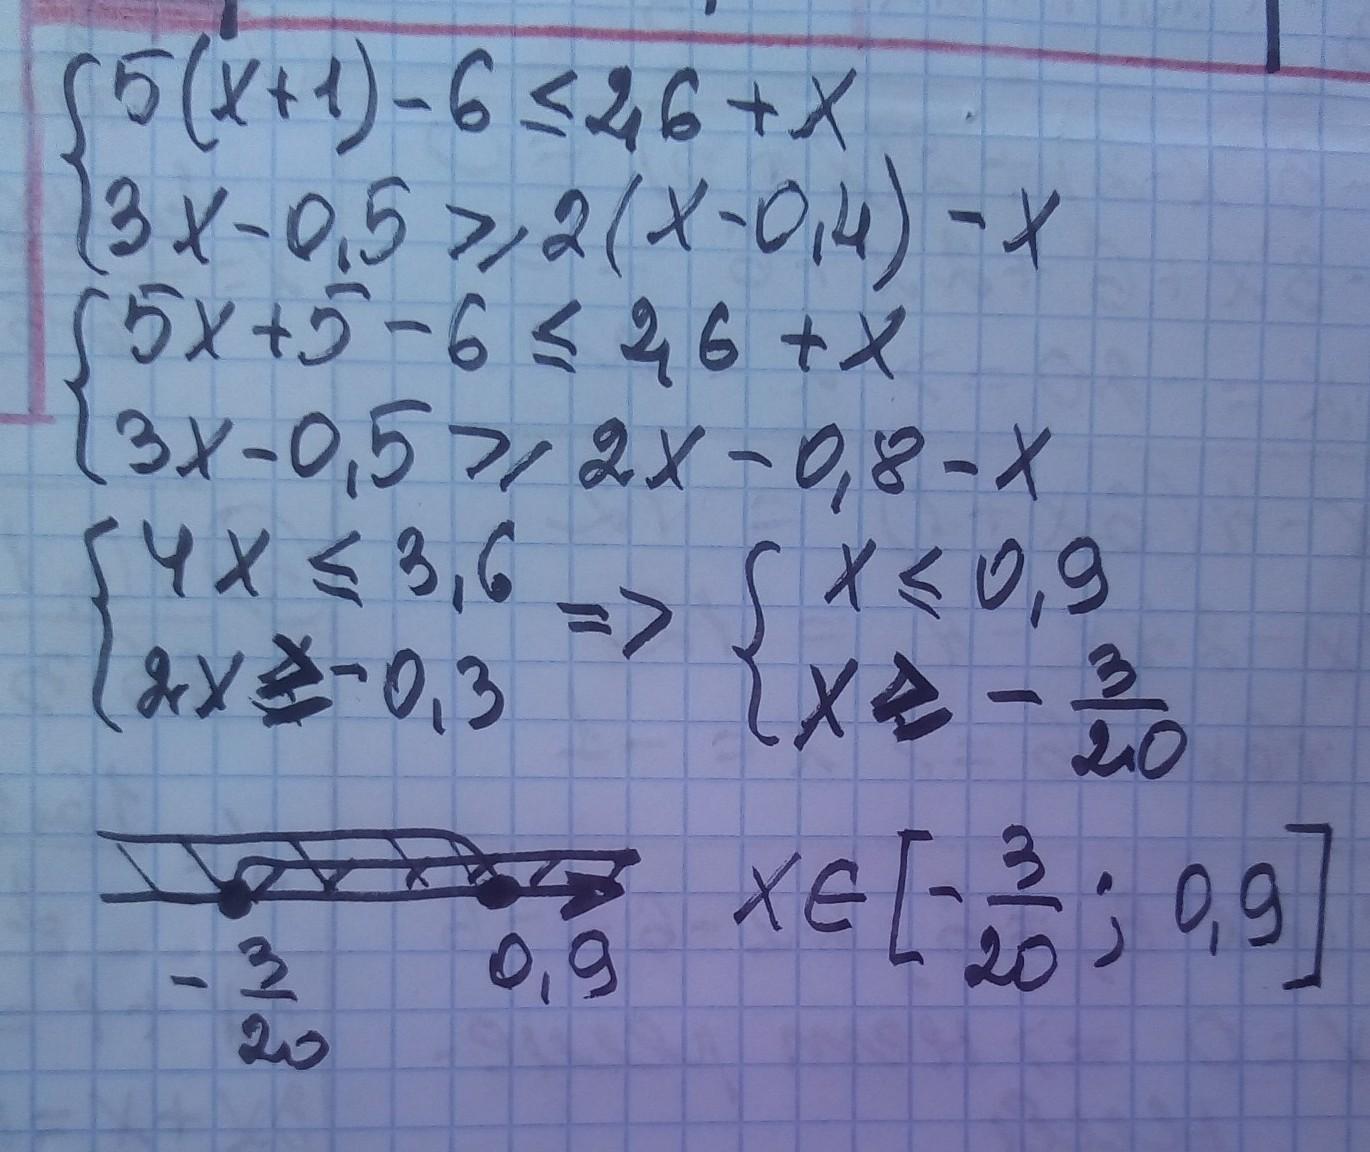 5(x+1)-6 ≤ 2,6 + x
3x-0,5 ⩾ 2(x-0,4) - x
5x+5-6 ≤ 2,6 + x
3x-0,5 ⩾ 2x - 0,8 - x
4x ≤ 3,6 => x ≤ 0,9
2x ≥ -0,3 x ⩾ - 3/20
x∈[-3/20; 0,9]
-3/20 0,9